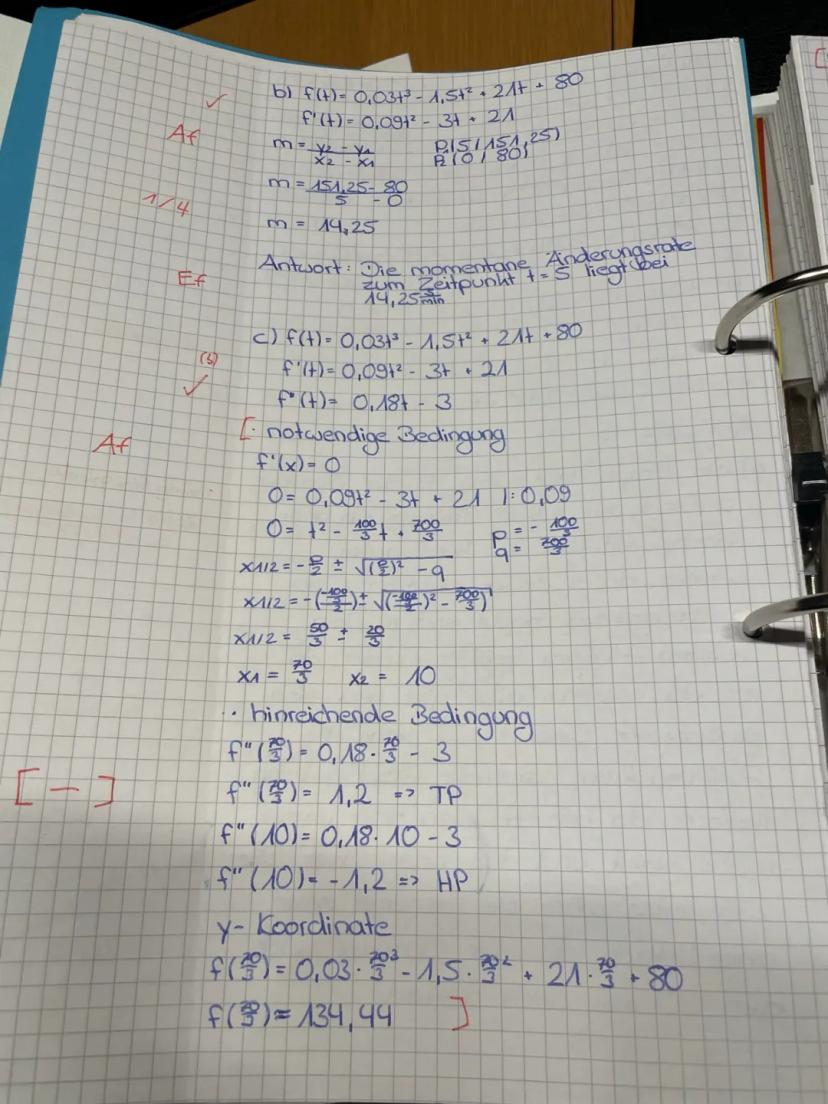 b) f(t) = 0,03t³ - 1,5t² + 21t + 80
✓
f'(t) = 0,09t² - 3t + 21
Af
m = y₂ - y₁ / x₂ - x₁ P₁(5/151,25)
P₂(0/80)
m = 151,25 - 80 / 5 - 0
1/4
m = 14,25
Antwort: Die momentane Änderungsrate
zum Zeitpunkt t = 5 liegt bei
Ef
14,25
c) f(t) = 0,03t³ - 1,5t² + 21t + 80
f'(t) = 0,09t² - 3t + 21
✓
f"(t) = 0,18t - 3
[· notwendige Bedingung
Af
f'(x) = 0
0 = 0,09t² - 3t + 21 |: 0,09
0 = t² - 100/3 t + 700/3 p = - 100/3
q = 700/3
x1/2 = - p/2 ± √(p/2)² - q
x1/2 = -(-100/3 / 2) ± √(-100/3 / 2)² - 700/3
x1/2 = 50/3 ± 20/3
x1 = 70/3 x2 = 10
· hinreichende Bedingung
f"(70/3) = 0,18 · 70/3 - 3
[-]
f"(70/3) = 1,2 => TP
f"(10) = 0,18 · 10 - 3
f"(10) = -1,2 => HP
y-Koordinate
f(70/3) = 0,03 · 70/3³ - 1,5 · 70/3² + 21 · 70/3 + 80
f(70/3) ≈ 134,44 ]